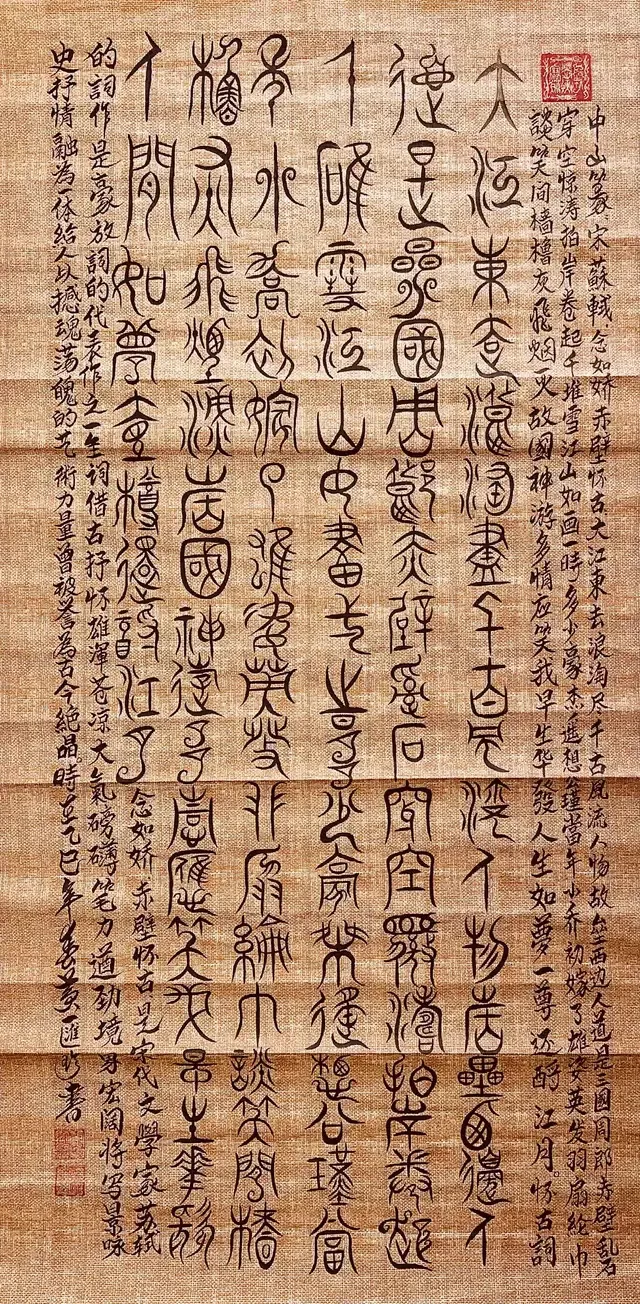 中山篆宋蘇軾念如娇赤壁怀古大江東去浪淘尽千古風流人物故垒西边人道是三國周郎赤壁乱石
穿空惊涛拍岸卷起千堆雪江山如画一時多少豪杰遥想公瑾當年小乔初嫁了雄姿英发羽扇纶巾
談笑间樯櫓灰飛烟灭故國神游多情应笑我早生华發人生如夢一尊还酹江月。怀古詞
大江東去浪淘盡千古風流人物故壘西邊人
道是三國周郎赤壁亂石穿空驚濤拍岸卷起
千堆雪江山如畫一時多少豪傑遙想公瑾當
年小喬初嫁了雄姿英發羽扇綸巾談笑間檣
櫓灰飛煙滅故國神遊多情應笑我早生華發
人間如夢一尊還酹江月
念如娇赤壁怀古是宋代文學家苏轼
的詞作是豪放詞的代表作之一全詞借古抒怀雄渾苍凉大氣磅礴笔力遒劲境界宏阔将写景咏
史抒情融為一体给人以撼魂荡魄的艺術力量曾被誉為古今絶品。時在乙巳年春黄匯書